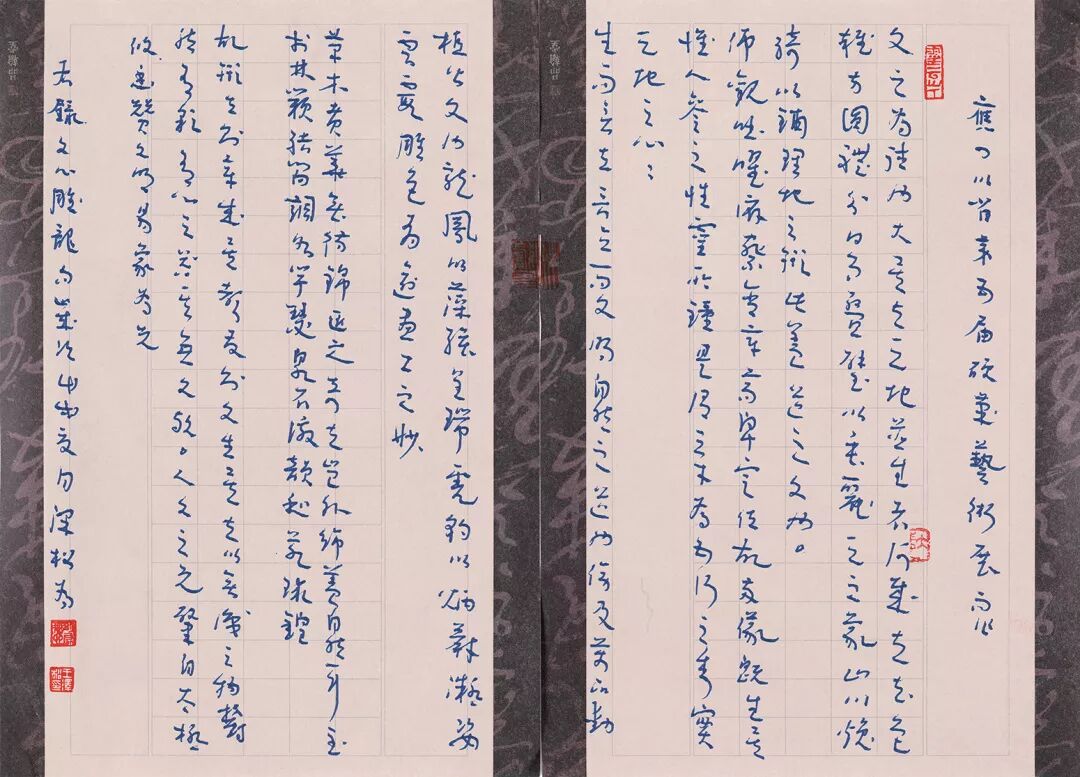 第五届 藝術展而作
文之為德也大矣与天地並生者何哉夫玄色
雜方圓體分日月疊璧以垂麗天之象山川煥
綺以鋪理地之形此蓋道之文也。
仰觀吐曜俯察含章高卑定位故兩儀既生矣
惟人參之性靈所鍾是謂三才為五行之秀實
天地之心々
生而言立言立而文明自然之道也傍及萬品動
植皆文也龍鳳以藻繪呈瑞虎豹以炳蔚凝姿
雲霞雕色有逾畫工之妙
草木賁華無待錦匠之奇夫豈外飾蓋自然耳至
於林籟結響調如竽瑟泉石激韻和若球鍠
故形立則章成矣聲發則文生矣夫以無識之物鬱
然有彩有心之器其無文歟。人文之元肇自太極
幽贊神明易象為先
右錄文心雕龍句歲次 夏月澤松為